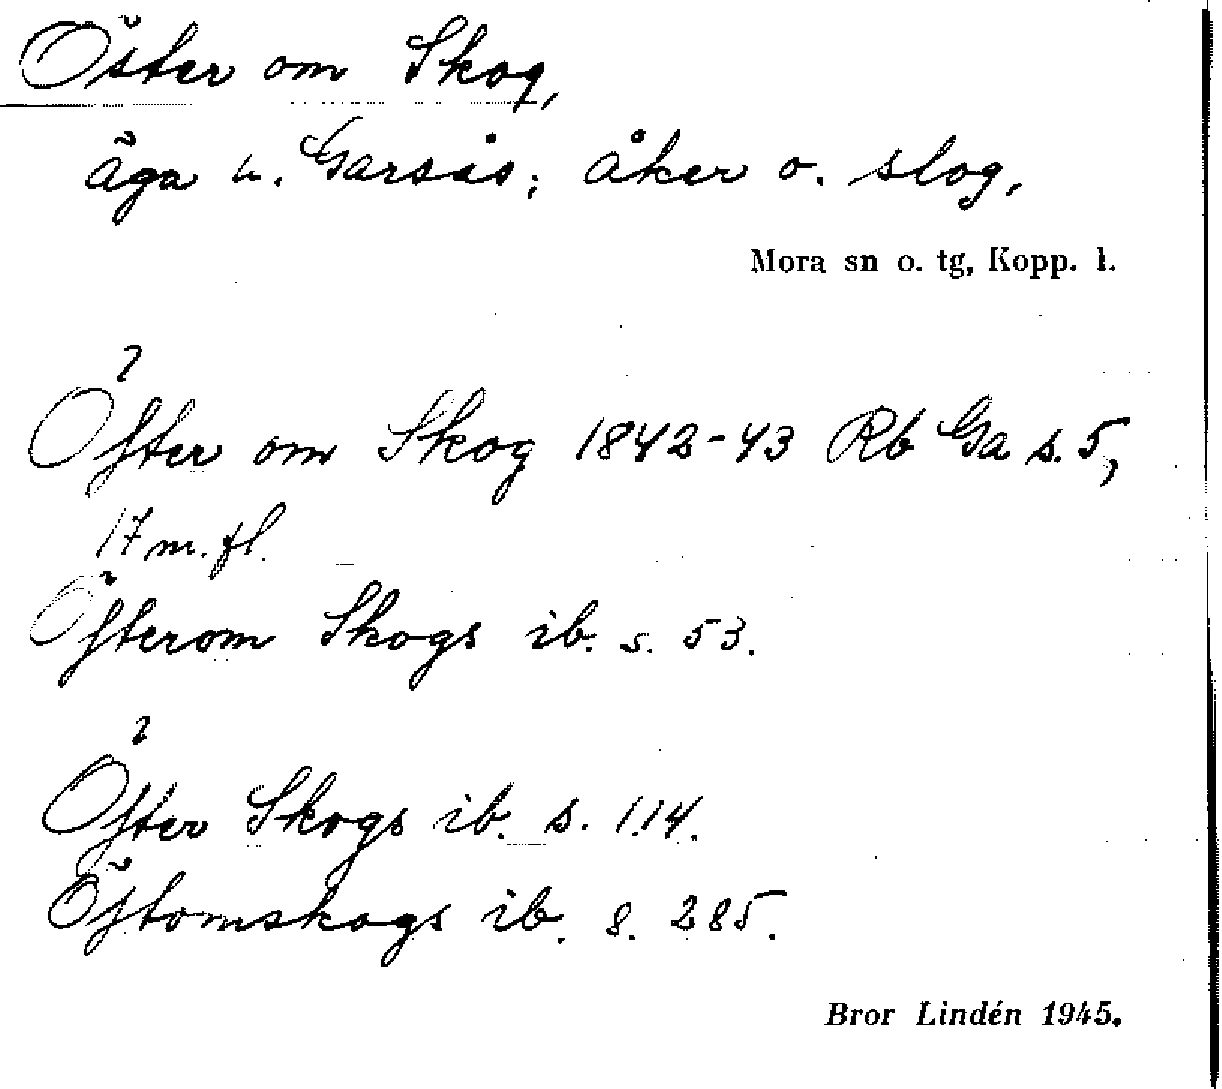 Öster om Skog,
äga u. Garsås; åker o. slog,
Mora sn o. tg, Kopp. l.
Öster om Skog 1842-43 Rb Ga s. 5,
17 m. fl.
Österom Skogs ib. s. 53.
Öster Skogs ib. s. 114.
Östomskogs ib. s. 285.
Bror Lindén 1945.